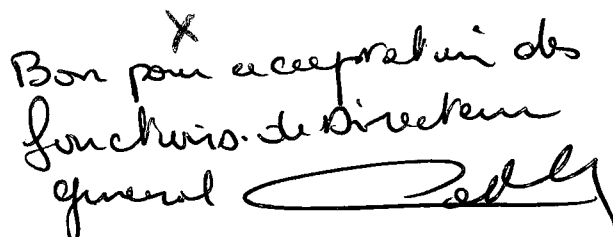 X
Bon pour acceptation des
fonctions de Directeur
general